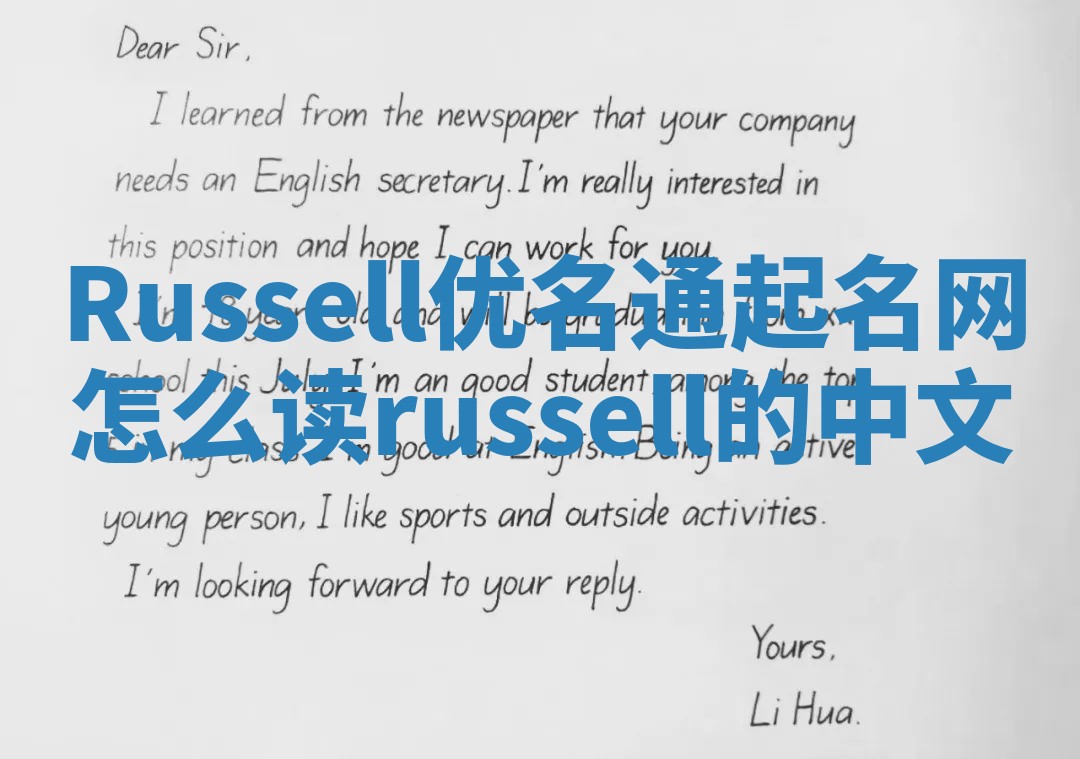 Dear Sir,
I learned from the newspaper that your company
needs an English secretary. I'm really interested in
this position and hope I can work for you.
Russell优名通起名网
I'm 18 year old and will be graduating from
school this July. I'm an good student, among the top
怎么读russell的中文
in my class. I'm good at English. Being an active
young person, I like sports and outside activities.
I'm looking forward to your reply.
Yours,
Li Hua.